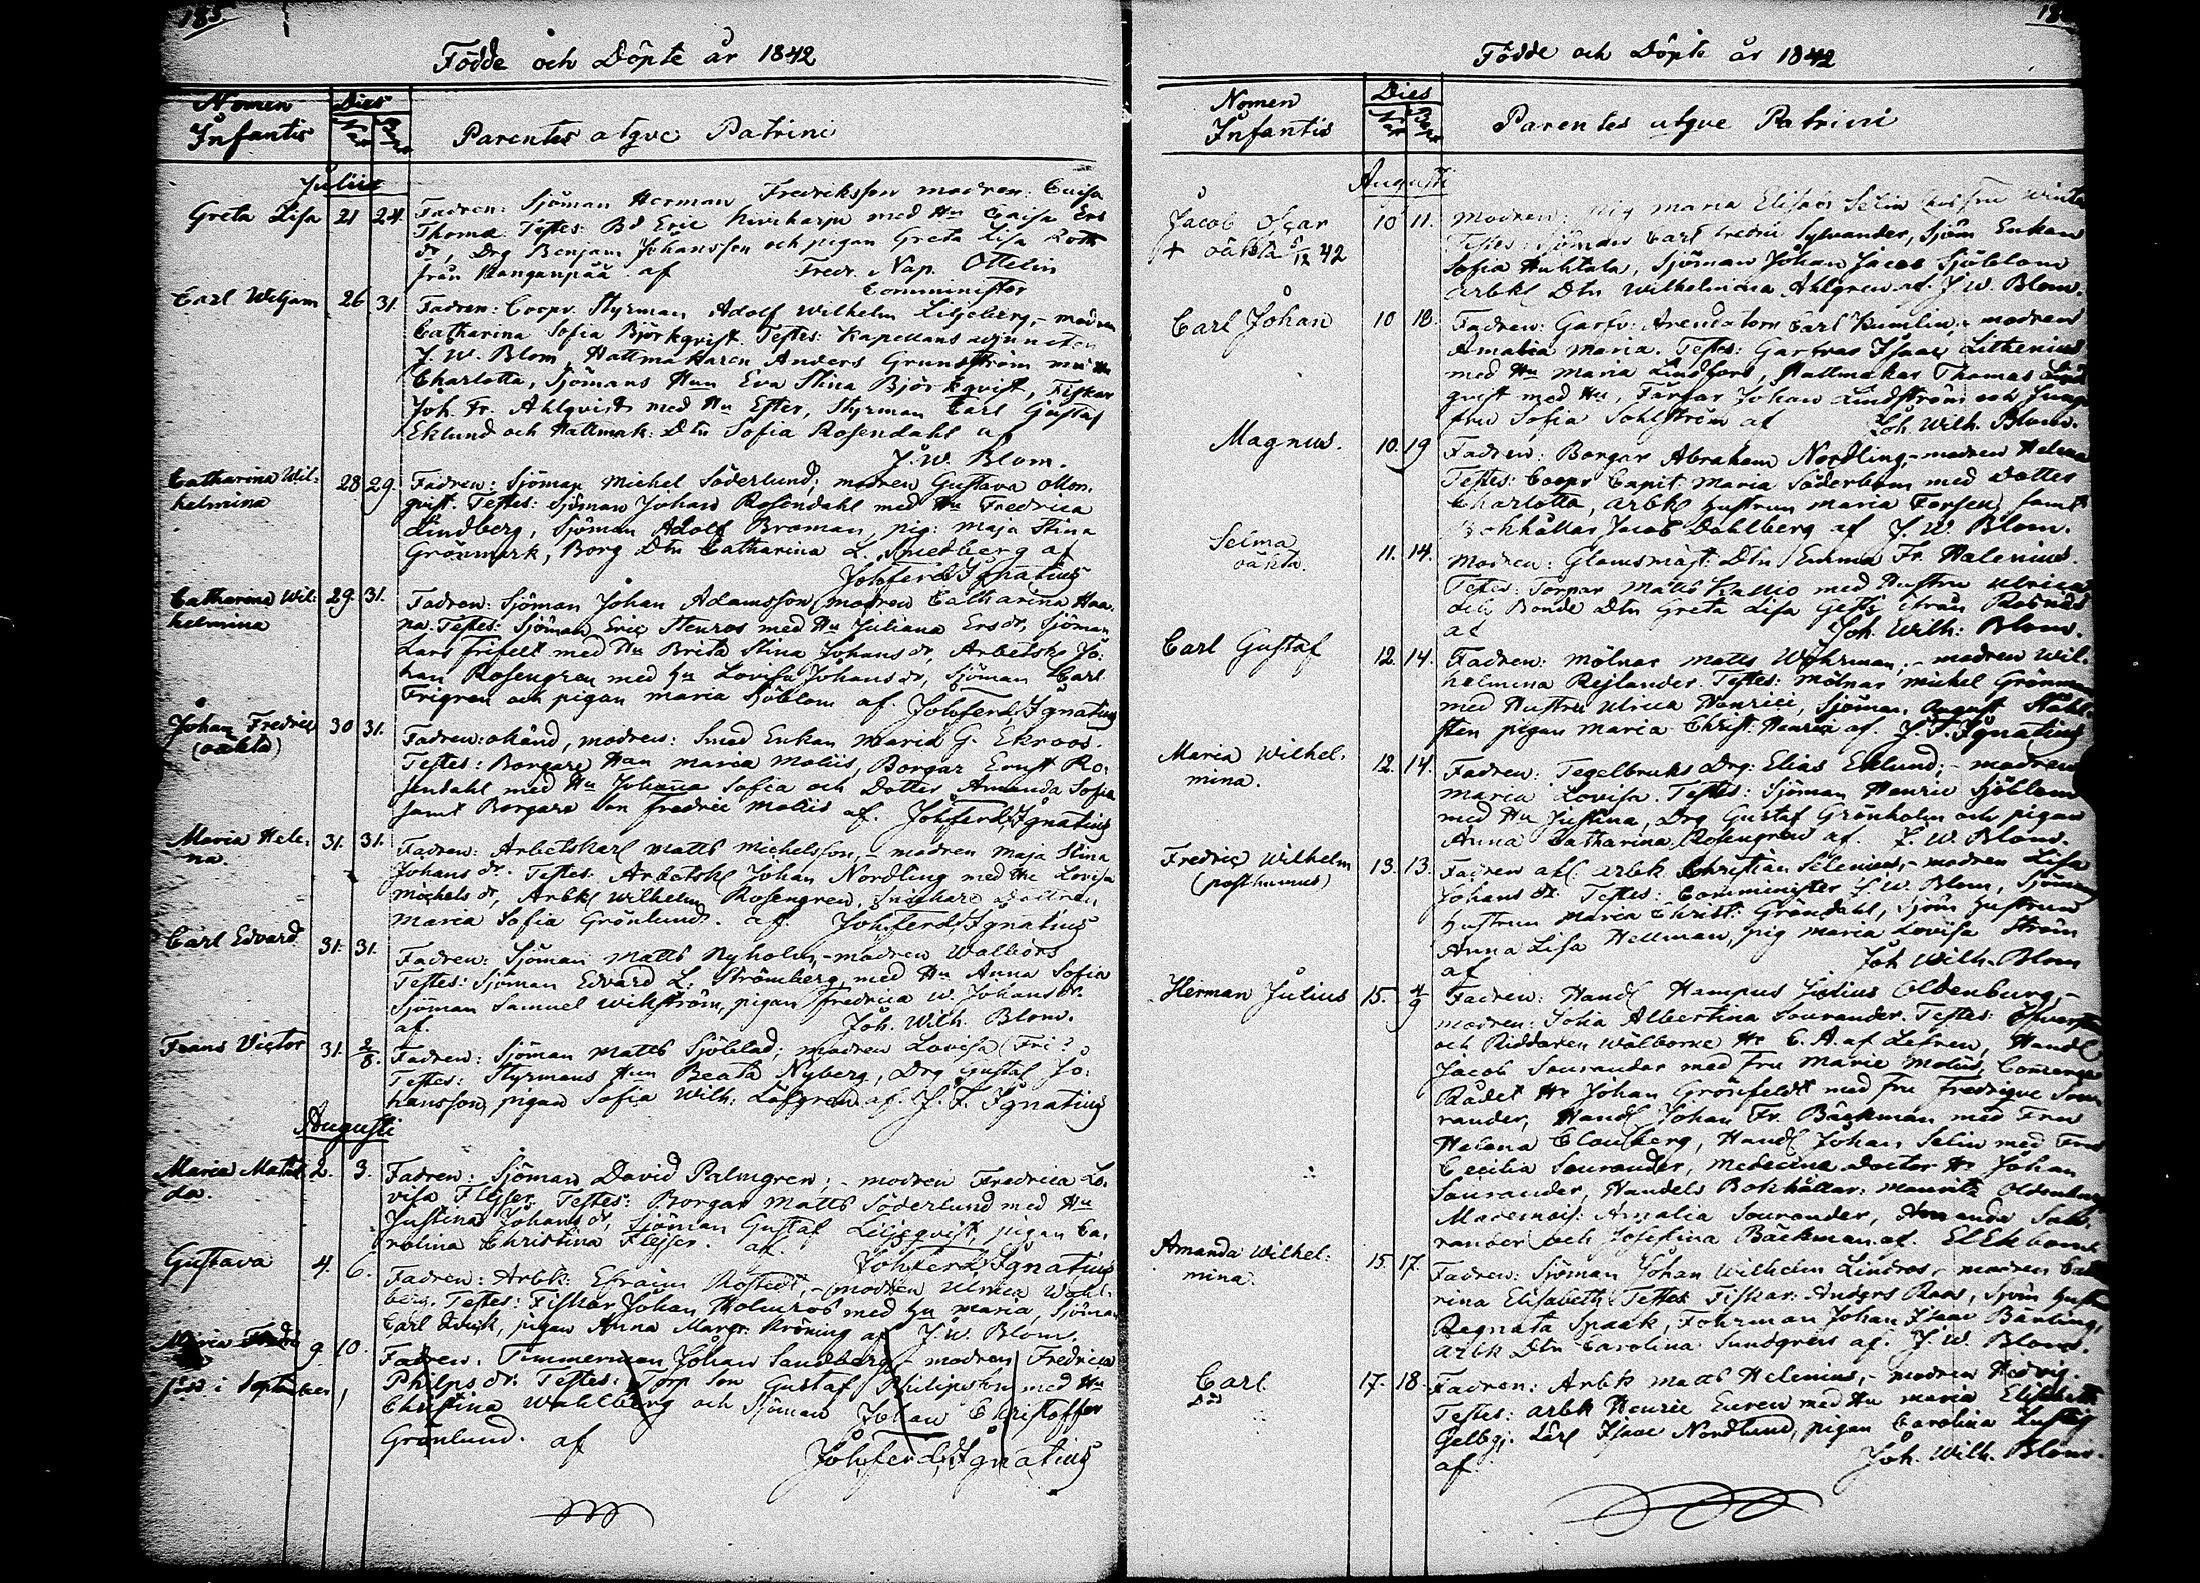 185
Födde och Döpte år 1842
Nomen Infantis
Dies
Parentes atqve Patrini
Julii
Greta Lisa 21 24. Fadren: Sjöman Herman Fredriksson modren: Caisa
Thomæ. Testes: Bd Eric med Hu Caisa Ers
dr, Drg Benjam Johansson och pigan Greta Lisa
från Kanganpää af Fredr. Nap. Ottelin
Comminister
Carl Wiljam 26 31. Fadren: Coopv. Styrman Adolf Wilhelm Liljeberg, - modren
Catharina Sofia Björkqvist. Testes: Kapellans adjuncten
J. W. Blom, Hattmakaren Anders Grunström med Hu
Charlotta, Sjömans Hun Eva Stina Björkqvist, Fiskar
Joh. Fr. Ahlqvist med Hu Ester, Styrman Carl Gustaf
Eklund och Hattmak: Dtn Sofia Rosendahl
J. W. Blom.
Catharina Wil= 28 29. Fadren: Sjöman Michel Söderlund; modren Gustava
helmina
qvist. Testes: Sjöman Johan Rosendahl med Hu Fredrica
Lindberg, Sjöman Adolf Broman, pig: Maja Stina
Grönmark, Borg Dtn Catharina L. Smedberg af
Joh. Ferd. Ignatius
Catharina Wil= 29. 31. Fadren: Sjöman Johan Adamsson, modren Catharina Haa=
helmina
na. Testes: Sjöman Eric Stenros med Hu Juliana Ersdr, Sjöman
Lars Frifelt med Hu Brita Stina Johansdr, Arbetsk Jo=
han Rosengren med Hu Lovisa Johansdr, Sjöman Carl
Frigren och pigan Maria Sjöblom af Joh. Ferd. Ignatius
Johan Fredric 30 31. Fadren: okänd, modren: Smed Enkan Maria G. Ekroos.
(oäkta)
Testes: Borgare Hun Maria Moliis, Borgar Ernst Ro=
sendahl med Hu Johanna Sofia och Dotter Amanda Sofia
samt Borgare Son Fredric Moliis af. Joh. Ferd. Ignatius
Maria Hele= 31. 31. Fadren: Arbetskarl Matts Michelsson, - modren Maja Stina
na.
Johansdr. Testes: Arbetsk Johan Nordling med Hu Lovisa
Michelsdr, Arbk Wilhelm Rosengren, Snickare dottren
Maria Sofia Grönlund. af. Joh. Ferd. Ignatius
Carl Edvard 31. 31. Fadren: Sjöman Matts Nyholm, - modren Walbors
Testes: Sjöman Edvard L. Strömberg med Hu Anna Sofia
Sjöman Samuel Wikström, pigan Fredrica W. Johansdr.
af. Joh. Wilh. Blom.
Frans Victor 31. 2/8. Fadren: Sjöman Matts Sjöblad; modren Lovisa
Testes: Styrmans Hun Beata Nyberg, Drg Gustaf Jo=
hansson, pigan Sofia Wilh. Löfgren af. J. F. Ignatius
Augusti
Maria Matil 2. 3. Fadren: Sjöman David Palmgren; - modren Fredrica Lo=
da.
visa Flejser. Testes: Borgar Matts Söderlund med Hu
Justina Johansdr, Sjöman Gustaf Liljeqvist, pigan Ca=
rolina Christina Flejser. af.
Joh. Ferd. Ignatius
Gustava 4. 6. Fadren: Arbk: Efraim Rostedt, - modren Ulrica Wahl=
berg. Testes: Fiskar Johan Holmros med Hu Maria, Sjöman
Carl Qvick, pigan Anna Margr: Kröning af J. W. Blom.
Maria 9. 10. Fadren. Timmerman Johan Sandberg, - modren Fredrica
född i September
Philpsdr. Testes: Torp Son Gustaf Philipsson med Hu
Christina Wahlberg och Sjöman Johan Christoffer
Grönlund. af
Joh. Ferd. Ignatius
Födde och Döpte år 1842
Nomen Infantis
Dies
Parentes atqve Patrini
Augusti
Jacob Oscar 10 11. Modren: pig Maria Elisab Selin
+ oäkta 5/12 42
Testes: Sjöman Carl Fredric Sylvander, Sjöm Enkan
Sofia Huhtala, Sjöman Johan Jacob Sjöblom
Arbk Dtn Wilhelmina Ahlgren af. J. W. Blom.
Carl Johan 10 18. Fadren: Garfv: Arendatorn Carl Kumlin; modren
Amalia Maria. Testes: Garfvar Isaac Lithenius
med Hu Maria Lindfors, Hattmakar Thomas Lind
qvist med Hu, Färgar Johan Lindström och Jung
fru Sofia Sohlström af Joh. Wilh. Blom.
Magnus. 10. 19 Fadren: Borgar Abraham Nordling, - modren Helena
Testes: Coopv Capit: Maria Söderbom med dotter
Charlotta, arbk hustrun Maria Forsen, samt
Bokhållar Jacob Dahlberg af J. W. Blom.
Selma 11. 14. Modren: Glasmäst: Dtn Emma Fr. Walenius.
oäkta.
Testes: Torpar Matts Kallio med Hustru Ulrica
och Bonde Dtn Greta Lisa från Rosnäs
af Joh. Wilh: Blom.
Carl Gustaf 12. 14. Fadren: Mölnar Matts Wöhrman, - modren Wil=
helmina Rejlander. Testes: Mölnar Michel Grönman
med Hustru Ulrica Henrici, Sjöman August Ståhl=
sten pigan Maria Christ. Henrici af. J. F. Ignatius
Maria Wilhel= 12. 14. Fadren: Tegelbruks Drg: Elias Eklund; - modren
mina.
Maria Lovisa. Testes: Sjöman Henric Sjöblom
med Hu Justina, Drg Gustaf Grönholm och pigan
Anna Catharina Rosengren af. J. W. Blom.
Fredric Wilhelm 13. 13. Fadren afl: arbk Christian Selenius, - modren Lisa
(posthumus)
Johansdr. Testes: Comminister J. W. Blom, Sjöman
hustrun Maria Christ: Gröndahl, Sjöm hustrun
Anna Lisa Hellman, pig Maria Lovisa Ström
af Joh Wilh. Blom
Herman Julius 15. 4/9 Fadren: Handl Hampus Julius Oldenburg, -
modren: Sofia Albertina Sourander. Testes: Öfverste
och Riddaren Wälborne Hr C. A. af Lefren, Handl
Jacob Sourander med Fru Marie Molüs, Comerce
Rådet Hr Johan Grönfeldt med Fru Fredrique Sou
rander, Handl Johan Fr. Bäckman med Fru
Helena Clouberg, Handl Johan Selin med Fru
Cecilia Sourander, Medecine Doctor Hr Johan
Sourander, Handels Bokhållar: Mauritz Oldenburg
Mademois: Amalia Sourander, Amanda Sou=
rander och Josefina Bäckman. af. El Ekbom
Amanda Wilhel= 15. 17. Fadren: Sjöman Johan Wilhelm Lindros, - modren Catha
mina.
rina Elisabeth Testes Fiskar: Anders Roos, Sjöm Hust
Regnata Spaak, Fohrman Johan Isaac Bärling,
Arbk Dtn Carolina Sundgren af. J. W. Blom.
Carl 17. 18. Fadren: Arbk Matts Helenius, - modren Hedvig.
Död
Testes: Arbk Henric Euren med Hu Maria Elisabeth
Gelbgj. Lärl Isaac Nordlund, pigan Carolina Lustig
af. Joh. Wilh. Blom.